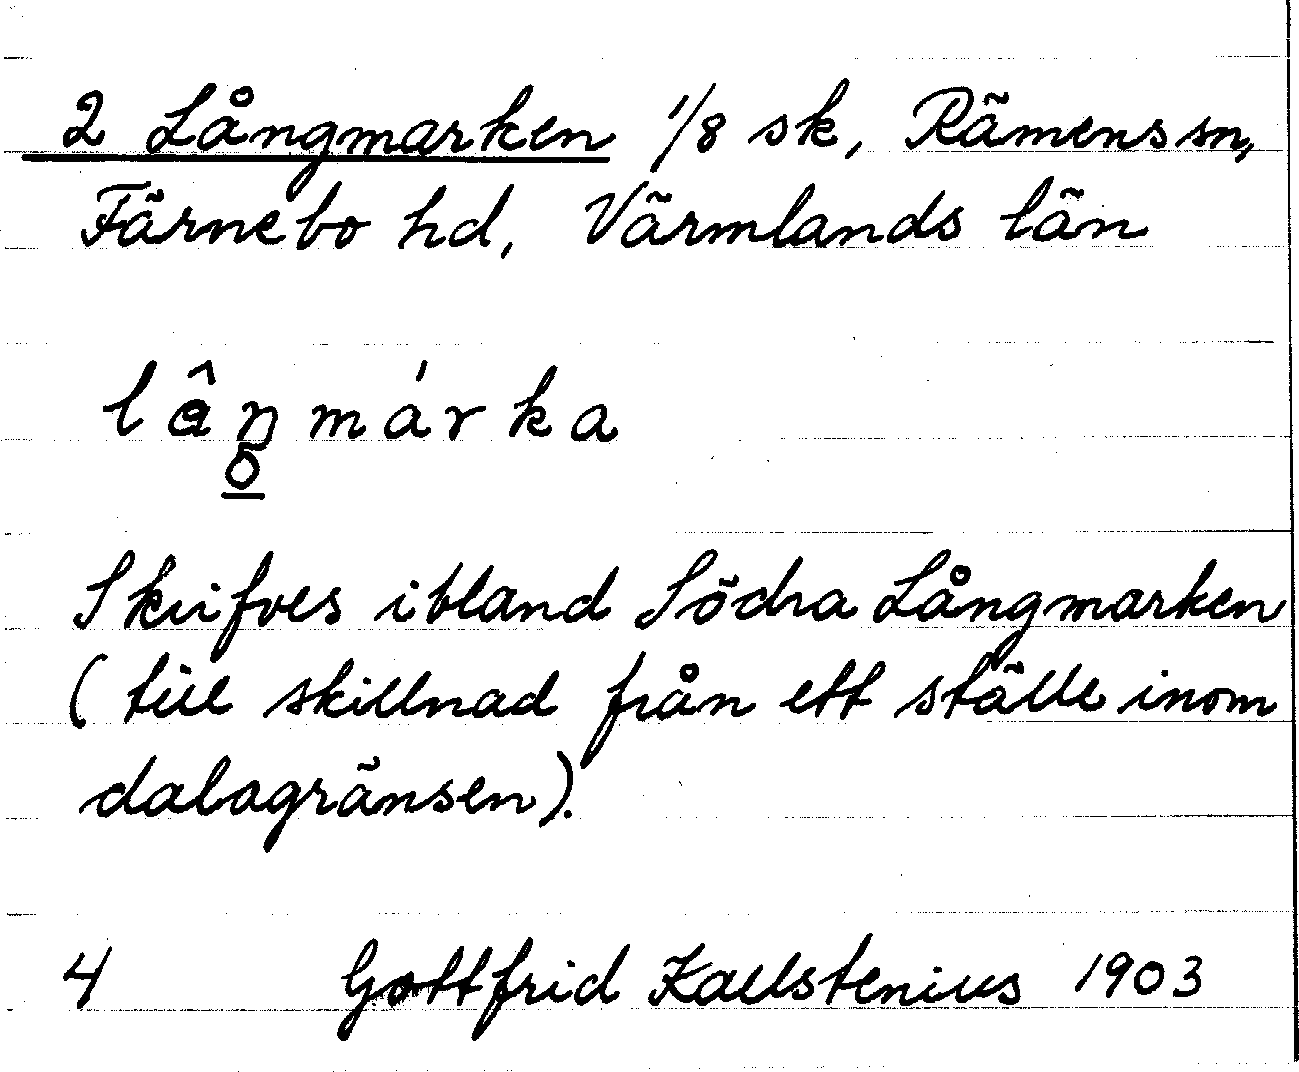 2 Långmarken 1/8 sk, Rämens sn,
Färnebo hd, Värmlands län
lâŋmárka
o
Skrifves ibland Södra Långmarken
(till skillnad från ett ställe inom
dalagränsen).
4 Gottfrid Kallstenius 1903